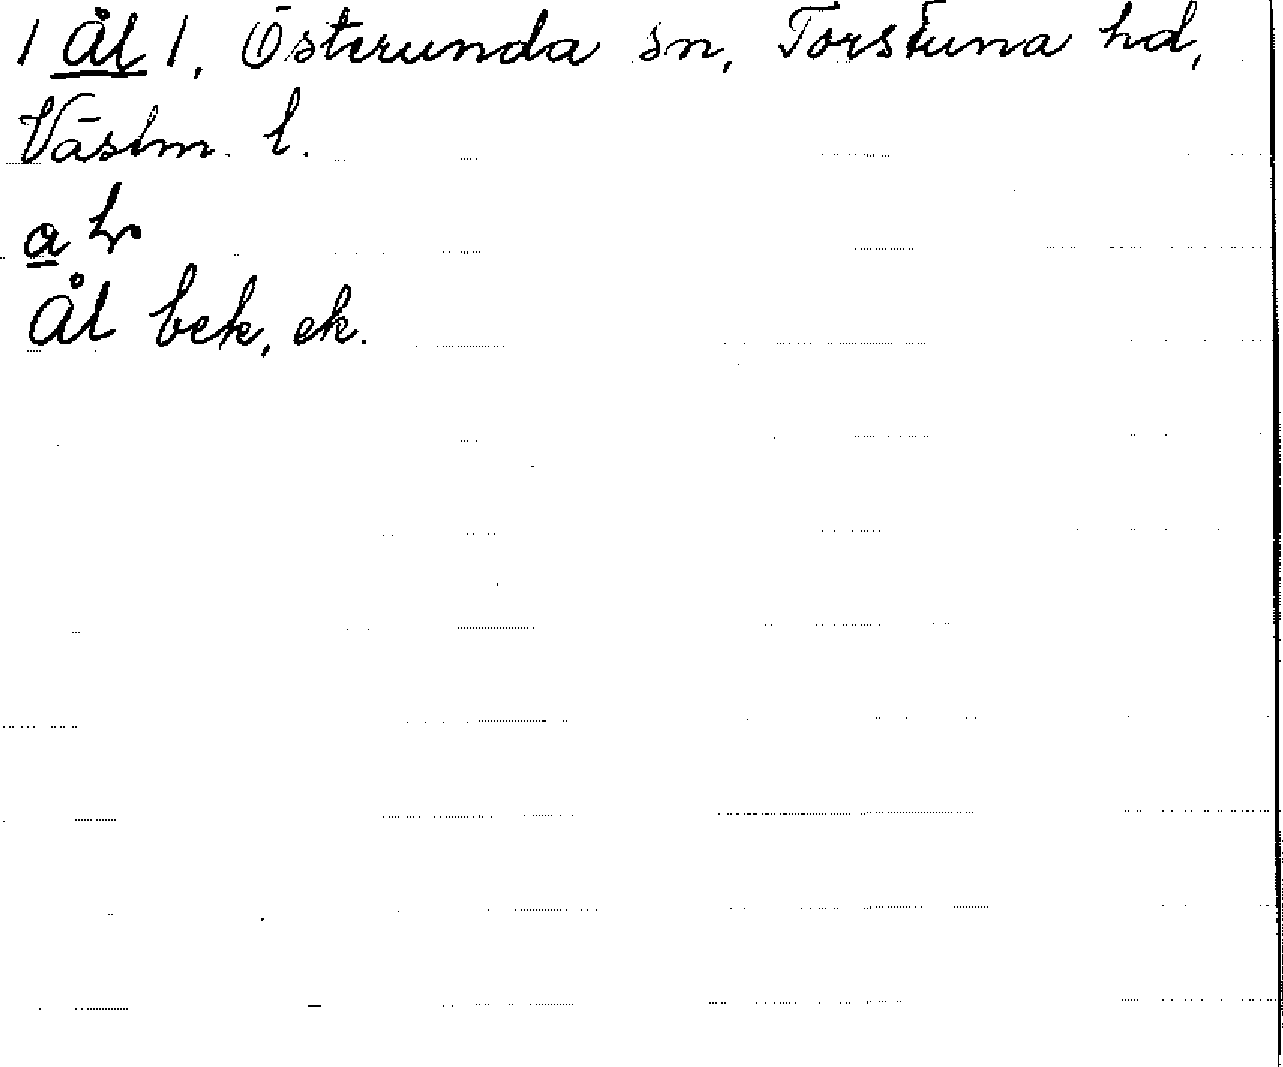 / Ål /, Österunda sn, Torstuna hd,
Västm. l.
a
Ål bek, ek.